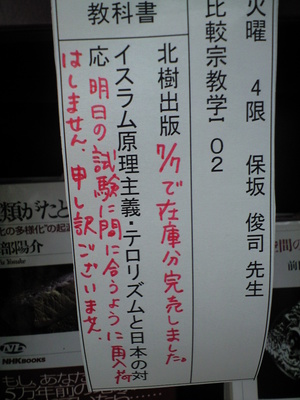 火曜 4限 保坂 俊司 先生
比較宗教学I 02
教科書
北樹出版 7/7で在庫分完売しました。
イスラム原理主義・テロリズムと日本の対
応 明日の試験に間に合うように再荷
はしません。申し訳ございません。
類がたと
部陽介
NHKBOOKS
もし、あな
5万年前の